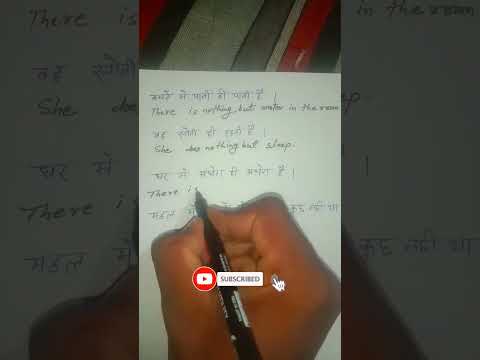 कमरें में पानी ही पानी है ।
There is nothing but water in the room
वह सोती ही रहती है ।
She does nothing but sleep.
घर में अंधेरा ही अंधेरा है ।
There i
महल में कुछ नहीं था
SUBSCRIBED